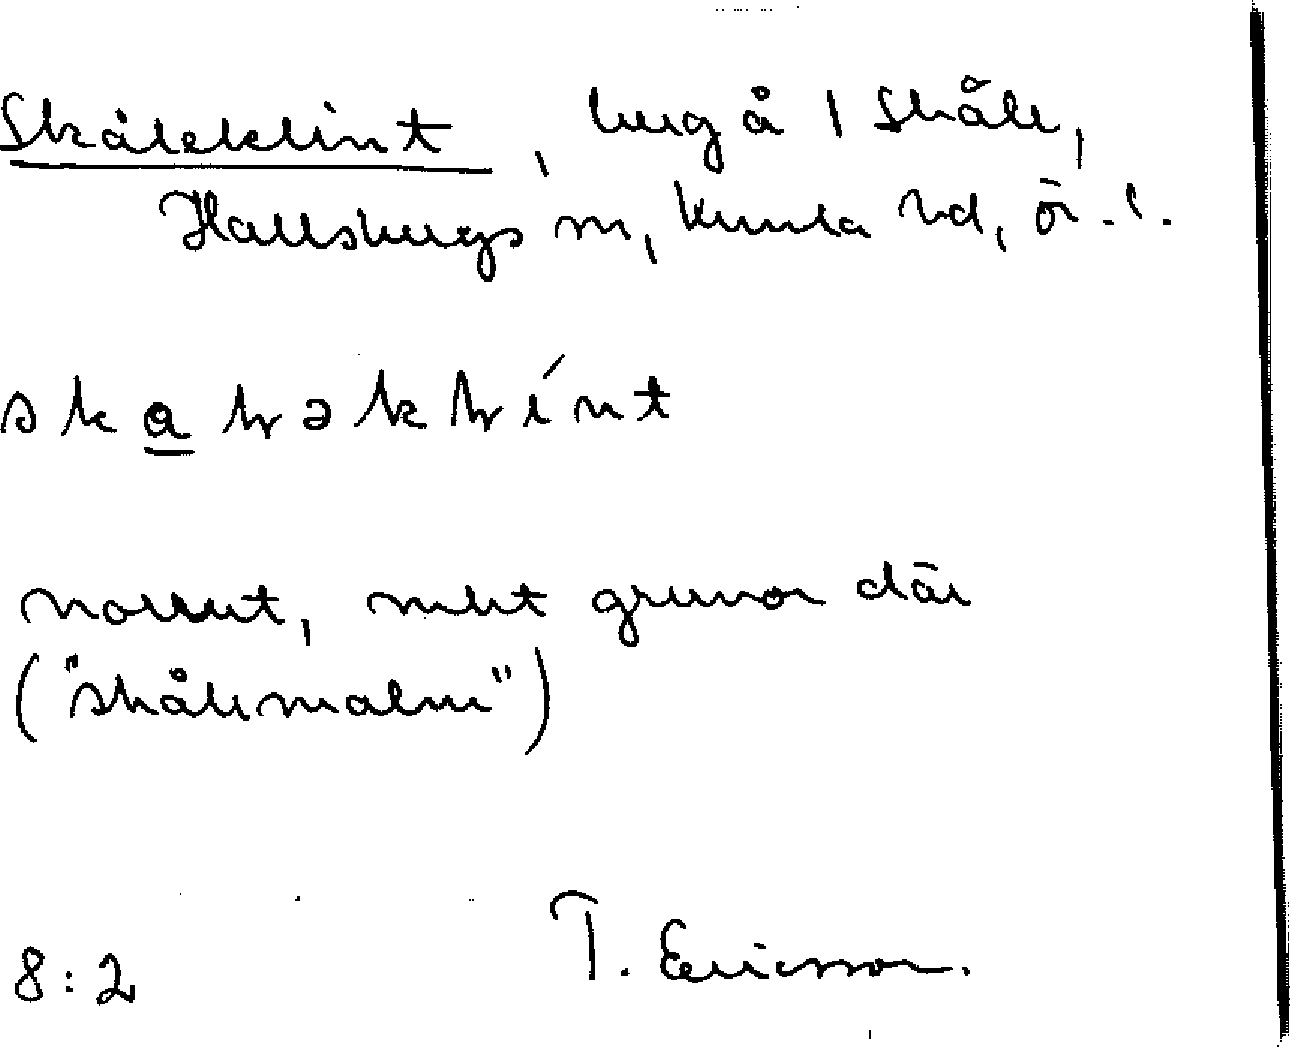 Skåleklint, berg å 1 Skåle,
Hallsbergs sn, Kumla hd, ör. l.
skaɫəkɫínt
norrut, mkt gruvor där
("skålemalm")
8:2 T. Ericsson.